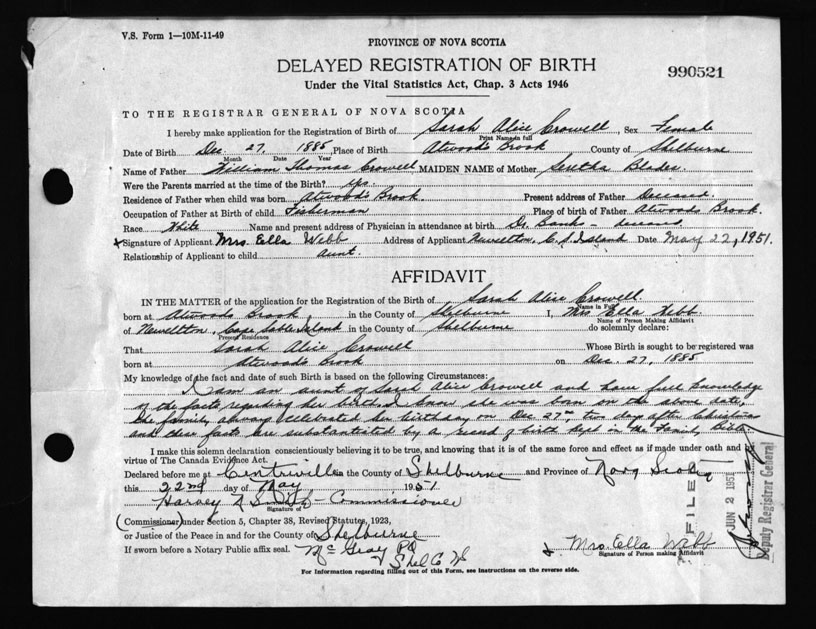 V.S. Form 1—10M-11-49
PROVINCE OF NOVA SCOTIA
DELAYED REGISTRATION OF BIRTH
990521
Under the Vital Statistics Act, Chap. 3 Acts 1946
TO THE REGISTRAR GENERAL OF NOVA SCOTIA
I hereby make application for the Registration of Birth of Sarah Alice Crowell, Sex Female
Print Name in full
Date of Birth Dec. 27, 1885 Place of Birth Atwood's Brook County of Shelburne
Month Date Year
Name of Father William Thomas Crowell MAIDEN NAME of Mother Seretha Blades
Were the Parents married at the time of the Birth? Yes.
Residence of Father when child was born Atwood's Brook Present address of Father Deceased
Occupation of Father at Birth of child Fisherman Place of birth of Father Atwoods Brook.
Race White Name and present address of Physician in attendance at birth Dr. Banks - deceased
x Signature of Applicant Mrs. Ella Webb Address of Applicant Newellton, C. S. Island Date May 22, 1951.
Relationship of Applicant to child aunt.
AFFIDAVIT
IN THE MATTER of the application for the Registration of the Birth of Sarah Alice Crowell
Name in Full
born at Atwoods Brook, in the County of Shelburne I, Mrs Ella Webb
Name of Person Making Affidavit
of Newellton, Cape Sable Island in the County of Shelburne do solemnly declare:
Present Residence
That Sarah Alice Crowell Whose Birth is sought to be registered was
born at Atwood's Brook on Dec. 27, 1885
My knowledge of the fact and date of such Birth is based on the following Circumstances:
I am an aunt of Sarah Alice Crowell and have full knowledge
of the facts regarding her birth. I know she was born on the above date,
the family always celebrated her birthday on Dec 27th, two days after Christmas
and these facts are substantiated by a record of birth kept in the Family Bible
I make this solemn declaration conscientiously believing it to be true, and knowing that it is of the same force and effect as if made under oath and by
virtue of The Canada Evidence Act.
Declared before me at Centreville in the County of Shelburne and Province of Nova Scotia
this 22nd day of May, 1951
Harvey A Smith - Commissioner
Signature of
(Commissioner) under Section 5, Chapter 38, Revised Statutes, 1923,
or Justice of the Peace in and for the County of Shelburne
If sworn before a Notary Public affix seal. McGray PO
Shel Co
x Mrs. Ella Webb
Signature of Person making Affidavit
For Information regarding filling out of this Form, see instructions on the reverse side.
FILED
JUN 2 1951
Deputy Registrar General